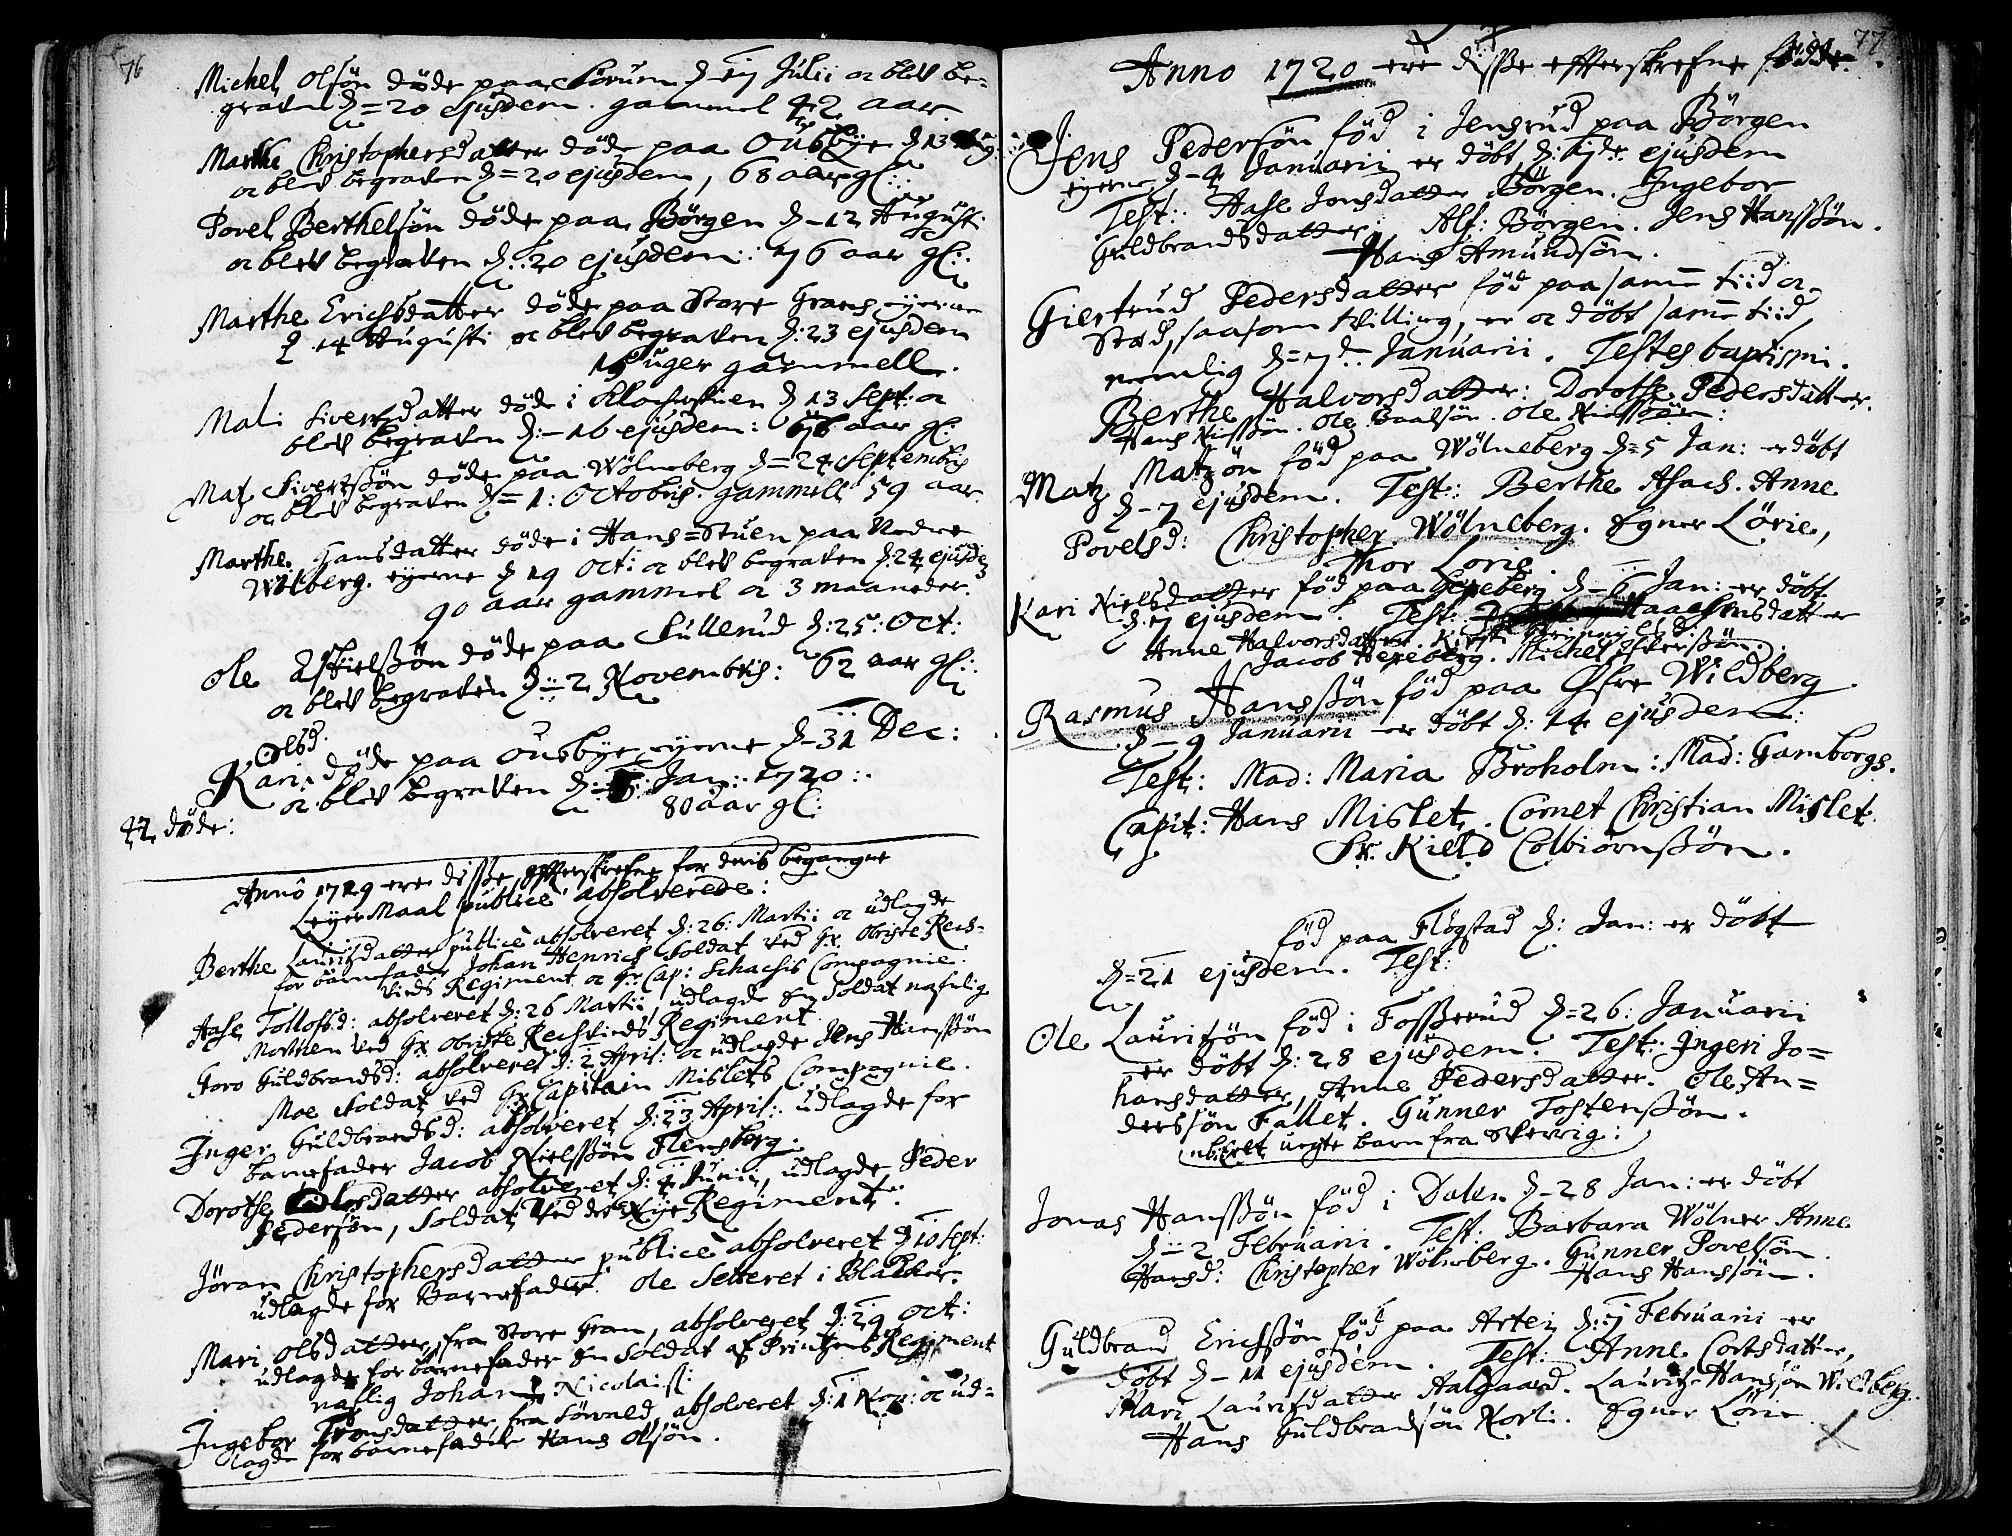 76
Michel Olsön döde paa Sörum d. 17 Julii oc blef be-
graven d=20 ejusdem. gammel 42 aar.
Marthe Christophersdatter döde paa Ousbye d 13 Aug:
oc blef begraven d=20 ejusdem, 68 aar gl:
Povel Berthelsön döde paa Börgen d-12 Augusti
oc blef begraven d: 20 ejusdem: 76 aar gl:
Marthe Erichsdatter döde paa Store Graens eyerne
d 14 Augusti oc blef begraven d: 23 ejusdem
Uger gammell.
Mali Sivertsdatter döde i d 13 Sept: oc
blef begraven d:-16 ejusdem: 76 aar gl:
Matz Sivertzsön döde paa Wölneberg d=24 Septembris
oc blef begraven d= 1: Octobris. gammell 59 aar.
Marthe Hansdatter döde i Hans=Stuen paa Nedre
Wölberg. eyerne d 19 Oct: oc blef begraven d: 24 ejusdem
90 aar gammel oc 3 maaneder.
Ole Eskielssön döde paa Sullerud d: 25: Oct:
oc blef begraven d=2 Novembris: 62 aar gl:
Olsd.
Kari döde paa Ousbye, eyerne d-31 Dec:
oc blef begraven d: Jan: 1720:
80 aar gl:
42 döde:
Anno 1719 ere disse effterskrefne for deris begangne
LeyerMaal publice absolverede:
Berthe Lauritsdatter publice absolveret d: 26: Martii oc udlagde
for barnefader Johan Henrich Soldat ved Hr. Obriste Rech-
Regiment oc Hr Cap: Schachis Compagnie.
Aase Tollofsd: absolveret d: 26 Martii, udlagde en Soldat nafnlig
Morthen ved Hr Obriste Regiment
Goro Guldbrandsd: absolveret d: 2 April: oc udlagde Jens Hanssön
Moe Soldat ved Hr Capitain Mislets Compagnie.
Inger Guldbrandsd: absolveret d: 23 April: udlagde for
barnefader Jacob Nielssön Flensberg.
Dorothe Olesdatter absolveret d: 4 Junii, udlagde Peder
Pedersön, Soldat ved det Nye Regiment.
Jöran Christophersdatter publice absolveret d 10 Sept:
udlagde for Barnefader Ole Setteret i Blakier.
Mari Olsdatter, fra Store Gran, absolveret d: 29 Oct:
udlagde for barnefader en Soldat af Printzens Regiment
nafnlig Johan Nicolai:
Ingebor Tronsdatter fra absolveret d: 1 Nov: oc ud-
lagde for barnefader Hans Olsön.
77.
Anno 1720 ere disse effterskrefne födde.
Jens Pedersön föd i Jensrud paa Börgen
eyerne d-4 Januarii er döbt d: 7de ejusdem
Test: Aase Jonsdatter Börgen. Ingebor
Guldbrandsdatter, Alf: Börgen. Jens Hanssön.
Hans Amundsön.
Giertrud Pedersdatter föd paa samme tiid oc
Sted, saasom tvilling, er oc döbt samme tiid
nemlig d=7de Januarii. Testes baptismi.
Berthe Halvorsdatter: Dorothe Pedersdatter.
Hans Nilssön. Ole Ole
Matz Matzön föd paa Wölneberg d=5 Jan: er döbt
d-7 ejusdem. Test: Berthe Asach. Anne
Povelsd: Christopher Wölneberg. Egner Lörie,
Thor Lorie.
Kari Nielsdatter föd paa Hexeberg d-6 Jan: er döbt
d: 7 ejusdem. Test:
Anne Halvorsdatter. Kirsti
Jacob Hexeberg. Michel
Rasmus Hanssön föd paa Öfre Wildberg
d-9 Januarii er döbt d: 14 ejusdem:
Test: Mad: Maria Broholm: Mad: Gamborgs.
Capit: Hans Mislet. Cornet Christian Mislet.
Sr. Kield Colbiörnssön.
föd paa Flögstad d: Jan: er döbt
d=21 ejusdem. Test:
Ole Lauritzön föd i Fosserud d=26: Januarii
er döbt d: 28 ejusdem. Test: Ingeri Jo=
hansdatter, Anne Pedersdatter. Ole An=
derssön Fallet. Gunner Tostenssön.
uegte barn fra
Jonas Hanssön föd i Dalen d-28 Jan: er döbt
d=2 Februarii. Test: Barbara Wölner Anne
Hansd: Christopher Wölneberg. Gunner Povelsön.
Hans Hanssön.
Guldbrand Erichssön föd paa Arteig d: 7 Februarii er
döbt d-11 ejusdem. Test: Anne Cortsdatter,
Mari Lauritsdatter Aalgaard. Lauritz Hanssön Wildberg.
Hans Guldbrandsön Norli. Egner Lörie.